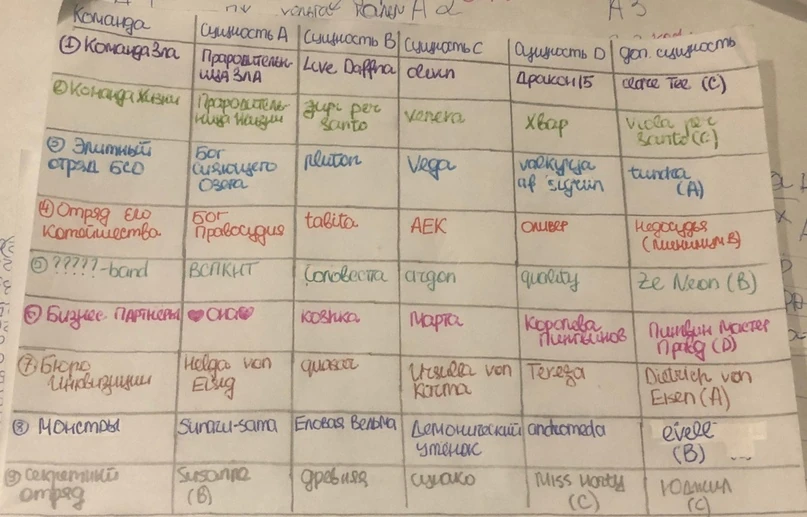 Команда
Сущность A
Сущность B
Сущность C
Сущность D
доп. сущность
① Команда Зла
Прародительн-
ица Зла
Love Daffna
Дракон 15
Tee (C)
② Команда Жизни
Прародитель-
ница Жизни
per
santo
venera
Хвар
Viola per
santo (C)
③ Элитный
отряд БСО
Бог
сияющего
Озера
pluton
Vega
valkyrja
af sigrun
tundra
(A)
④ Отряд Его
Котейшества
Бог
Правосудия
tabita
АЕК
Оливер
Недосудья
(минимум B)
⑤ ?????-band
ВСПКНТ
argon
quality
Ze Neon (B)
⑥ Бизнес партнеры
♥ОНА♥
кошка
Марта
Королева
Пингвинов
Пингвин Мастер
Правд (D)
⑦ Бюро
Инквизиции
Helga von
quasar
Ursula von
Karma
Tereza
Dietrich von
Eisen (A)
⑧ Монстры
-sama
Еловая Ведьма
Демонический
утёнок
andromeda
evell
(B)
⑨ Секретный
отряд
Susanna
(B)
древняя
Miss
(C)
Юджил
(C)